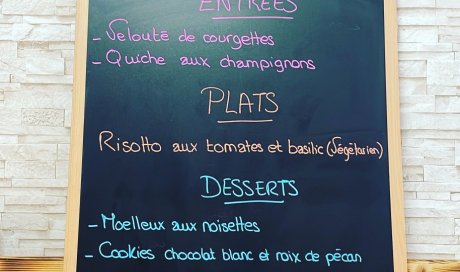 ENTRÉES
- Velouté de courgettes
- Quiche aux champignons
PLATS
Risotto aux tomates et basilic (Végétarien)
DESSERTS
- Moelleux aux noisettes
- Cookies chocolat blanc et noix de pécan